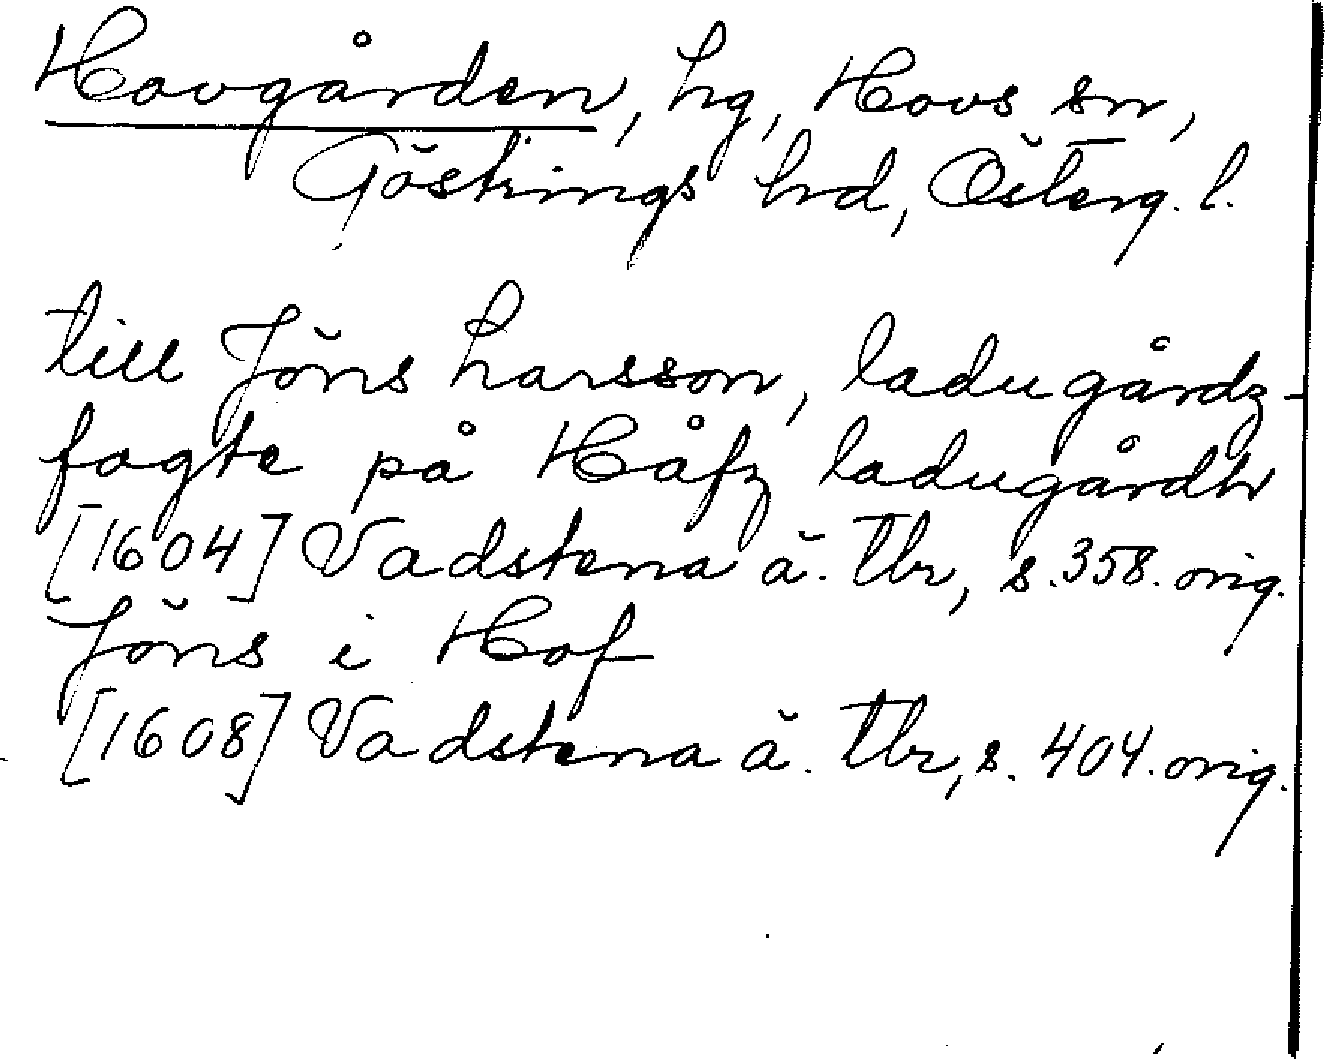 Hovgården, hg, Hovs sn,
Göstrings hrd, Österg. l.
till Jöns Larsson, ladugårdz-
fogte på Håfz ladugårdh
[1604] Vadstena ä. tbr, s. 358. orig.
Jöns i Hof
[1608] Vadstena ä. tbr, s. 404. orig.